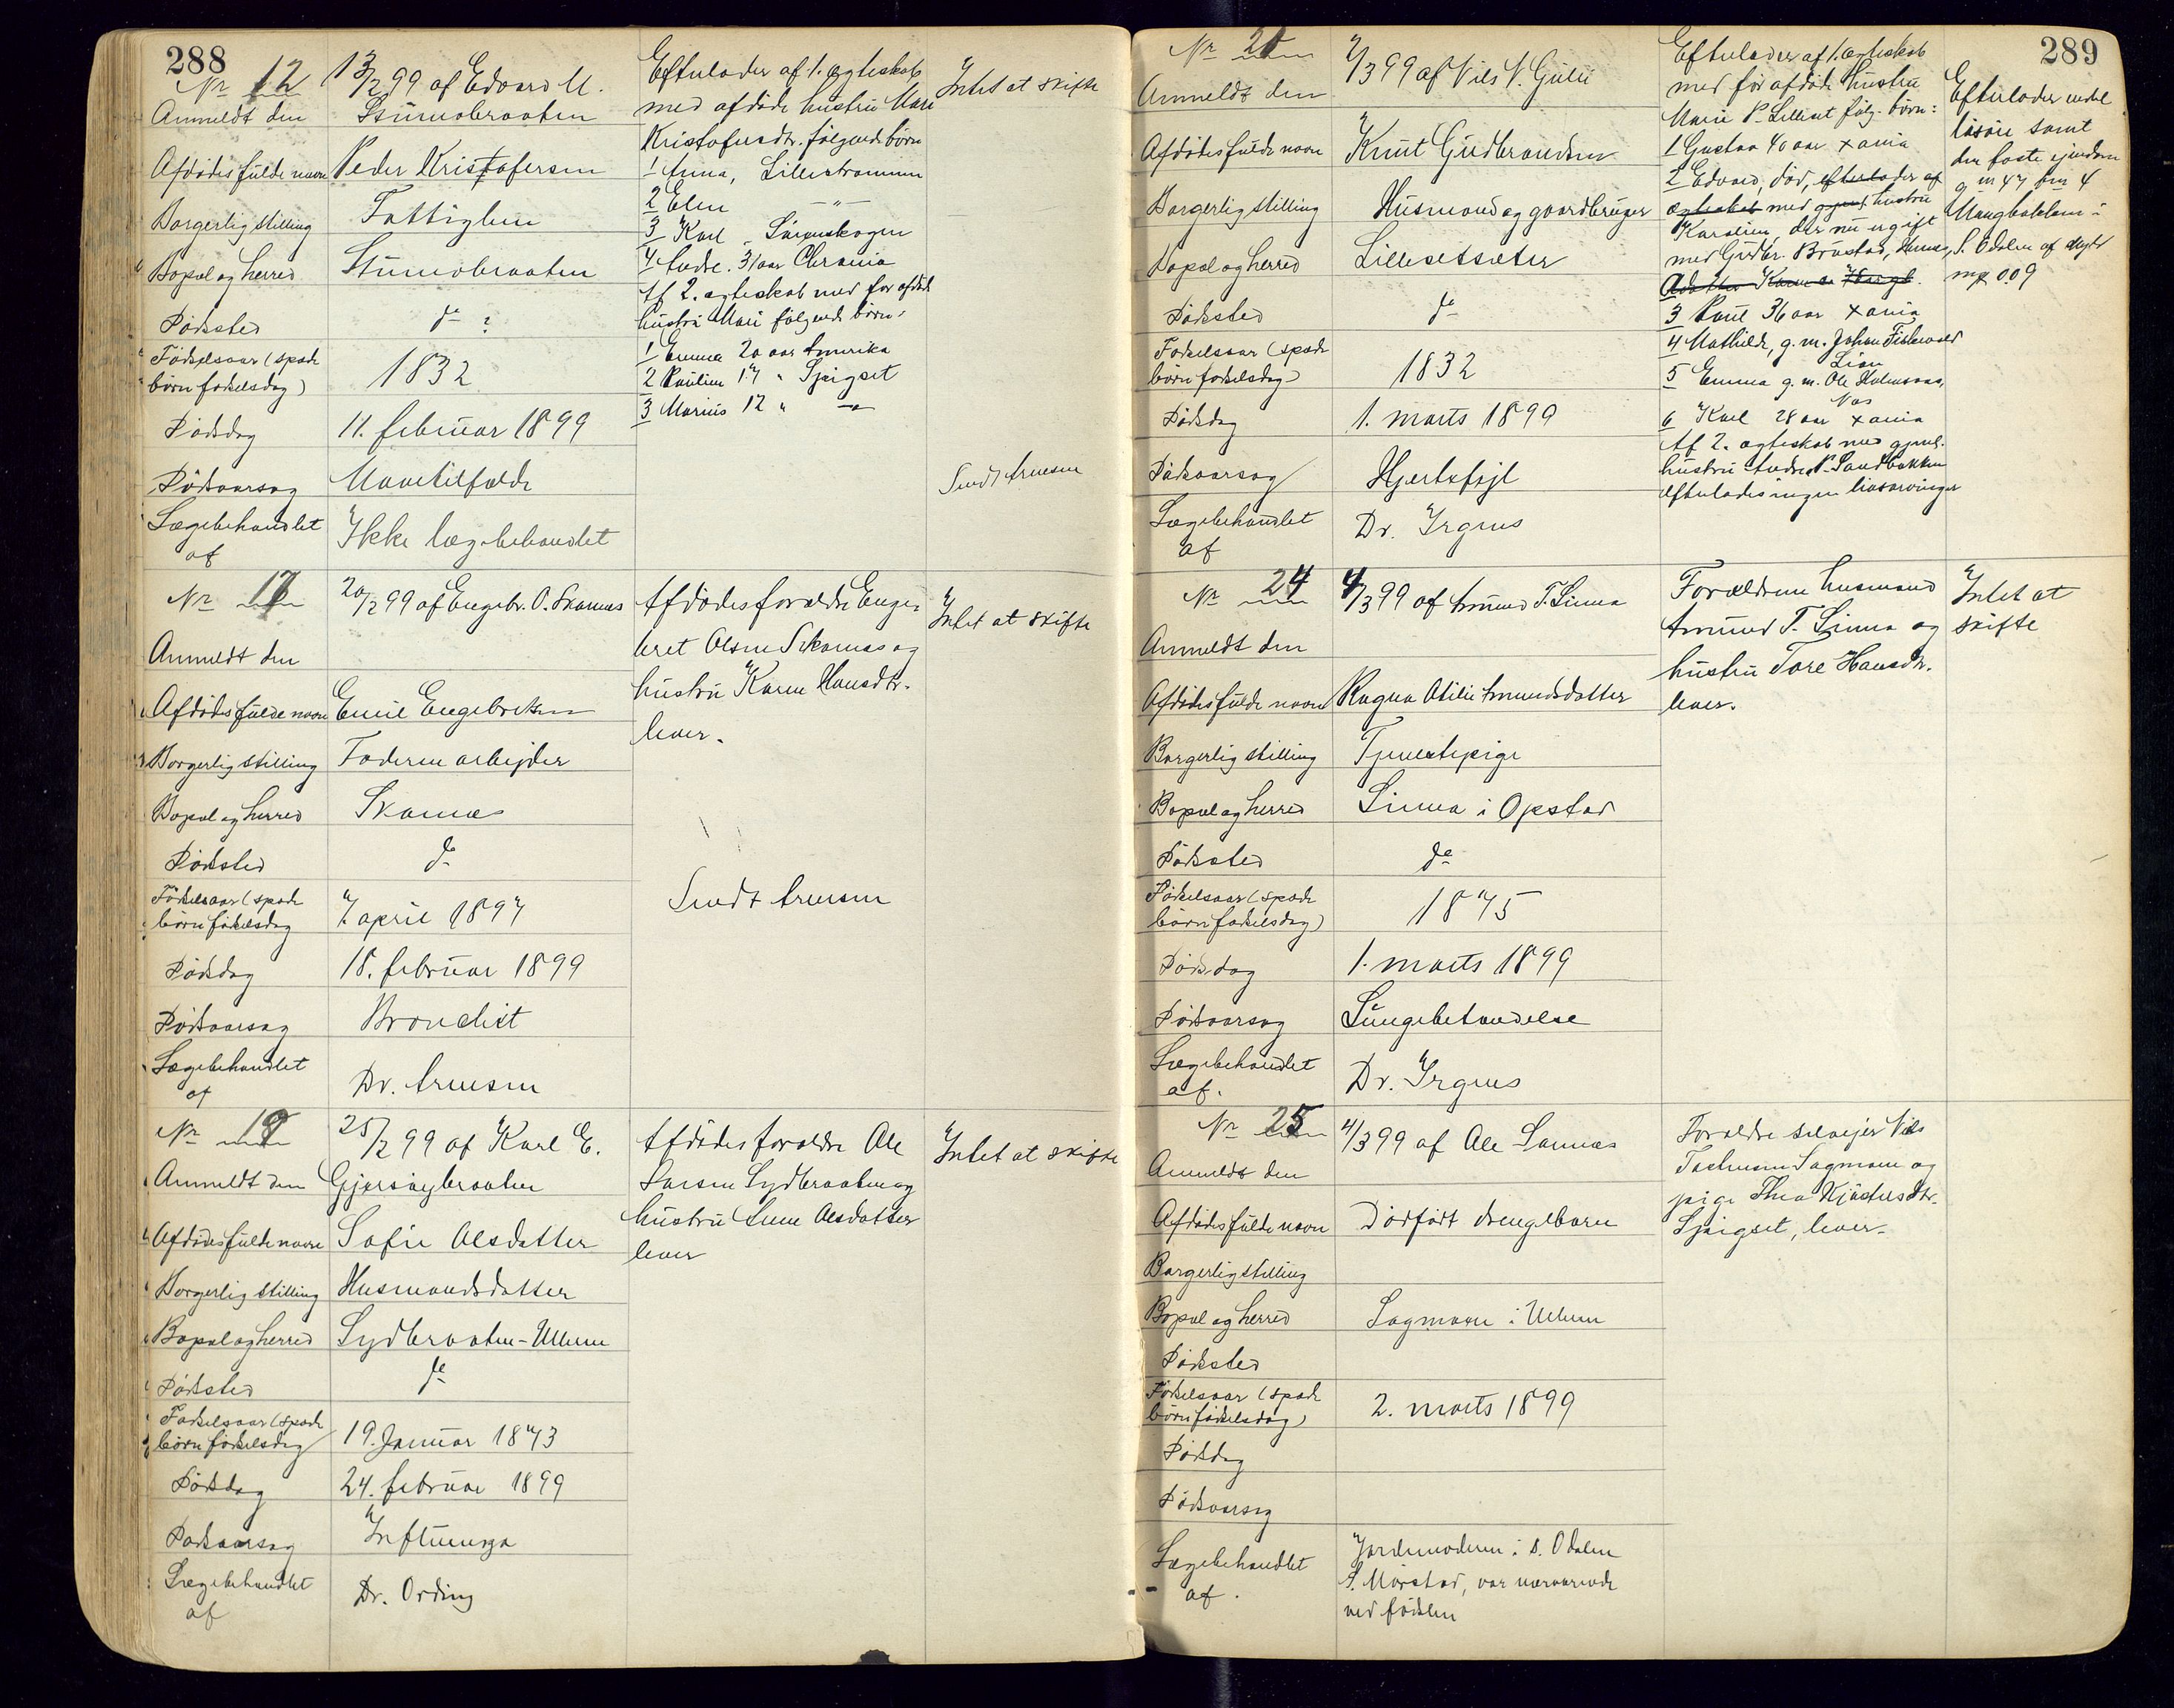 288
Nr 12
Anmeldt den
13/2 99 af Edvard M.
Stümobraaten
Afdødes fulde navn
Peder Kristofersen
Borgerlig stilling
Fattiglem
Bopæl og herred
Stümobraaten
Dødssted
do ?
Fødselsaar (spæde
børn fødselsdag)
1832
Dødsdag
11. februar 1899
Dødsaarsag
Mavetilfælde
Lægebehandlet
af
Ikke lægebehandlet
Efterlader af 1. ægteskab
med afdøde hustru Mari
Kristofersdtr. følgende børn
1 Anna, Lillestrømmen
2 Elen -"-
3 Karl
4 Andr. 31 aar Chrania
Af 2. ægteskab med før afdøde
hustru Mari følgende børn:
1 Emma 20 aar Amerika
2 Pauline 17 " Sjøigset
3 Marius 12 " -"-
Intet at skifte
Sendt Arnesen
Nr 17
Anmeldt den
20/2 99 af Engebr. O. Skarnæs
Afdødes fulde navn
Emil Engebretsen
Borgerlig stilling
Faderen arbejder
Bopæl og herred
Skarnæs
Dødssted
do
Fødselsaar (spæde
børn fødselsdag
7. april 1897
Dødsdag
18. februar 1899
Dødsaarsag
Bronchit
Lægebehandlet
af
Dr. Arnesen
Afdødes forældre Enge-
bret Olsen Skarnæs og
hustru Karen Hansdtr.
lever.
Sendt Arnesen
Intet at skifte
Nr 19
Anmeldt den
25/2 99 af Karl E.
Gjersøybraaten
Afdødes fulde navn
Sofie Olsdatter
Borgerlig stilling
Husmandsdatter
Bopæl og herred
Sydbraaten-Ullern
Dødssted
do
Fødselsaar (spæde
børn fødselsdag
19. Januar 1873
Dødsdag
24. februar 1899
Dødsaarsag
Influenza
Lægebehandlet
af
Dr. Ording
Afdødes forældre Ole
Larsen Sydbraaten og
hustru Lene Olsdatter
lever
Intet at skifte
289
Nr 21
Anmeldt den
2/3 99 af Nils N. Guli
Afdødes fulde navn
Knut Gudbrandsen
Borgerlig stilling
Husmand og gaardbruger
Bopæl og herred
Lillesetsæter
Dødssted
do
Fødselsaar (spæde
børn fødselsdag)
1832
Dødsdag
1. marts 1899
Dødsaarsag
Hjertefejl
Lægebehandlet
af
Dr. Irgens
Efterlader af 1. ægteskab
med før afdøde hustru
Marie P. Lilleset følg. børn:
1 Gustav 40 aar Xania
2 Edvard, død, efterlader af
ægteskab med gjenl. hustru
Karoline, der nu er gift
med Gudbr. Brustad,
3 Paul 36 aar Xania
4 Mathilde, g. m. Johan Fiskevold
Lian
5 Emma g. m. Ole Holmsnæs,
Nes
6 Karl 28 aar Xania
Af 2. ægteskab med gjenl.
hustru Andrea P. Sandbakken
efterlades ingen livsarvinger
Efterlader endel
løsøre samt
den faste ejendom
g no 47 bn 4
Mangbakken i
S. Odalen af skyld
mk 0.09
Nr 24
Anmeldt den
4/3 99 af Amund T. Linna
Afdødes fulde navn
Ragna Otilie Amundsdatter
Borgerlig stilling
Tjenestepige
Bopæl og herred
Linna i Opstad
Dødssted
do
Fødselsaar (spæde
børn fødselsdag)
1875
Dødsdag
1. marts 1899
Dødsaarsag
Lungebetændelse
Lægebehandlet
af.
Dr. Irgens
Forældrene husmand
Amund T. Linna og
hustru Tore Hansdtr.
lever.
Intet at
skifte
Nr 25
Anmeldt den
4/3 99 af Ole Sannæs
Afdødes fulde navn
Dødfødt drengebarn
Borgerlig stilling
Bopæl og herred
Sagmoen i Ullern
Dødssted
Fødselsaar (spæde
børn fødselsdag)
2. marts 1899
Dødsdag
Dødsaarsag
Lægebehandlet
af.
Jordemoderen i S. Odalen
S. Mørstad, var nærværende
ved fødslen
Forældre selvejer Nils
Sagmoen og
pige Thea
Sjøigset, lever.